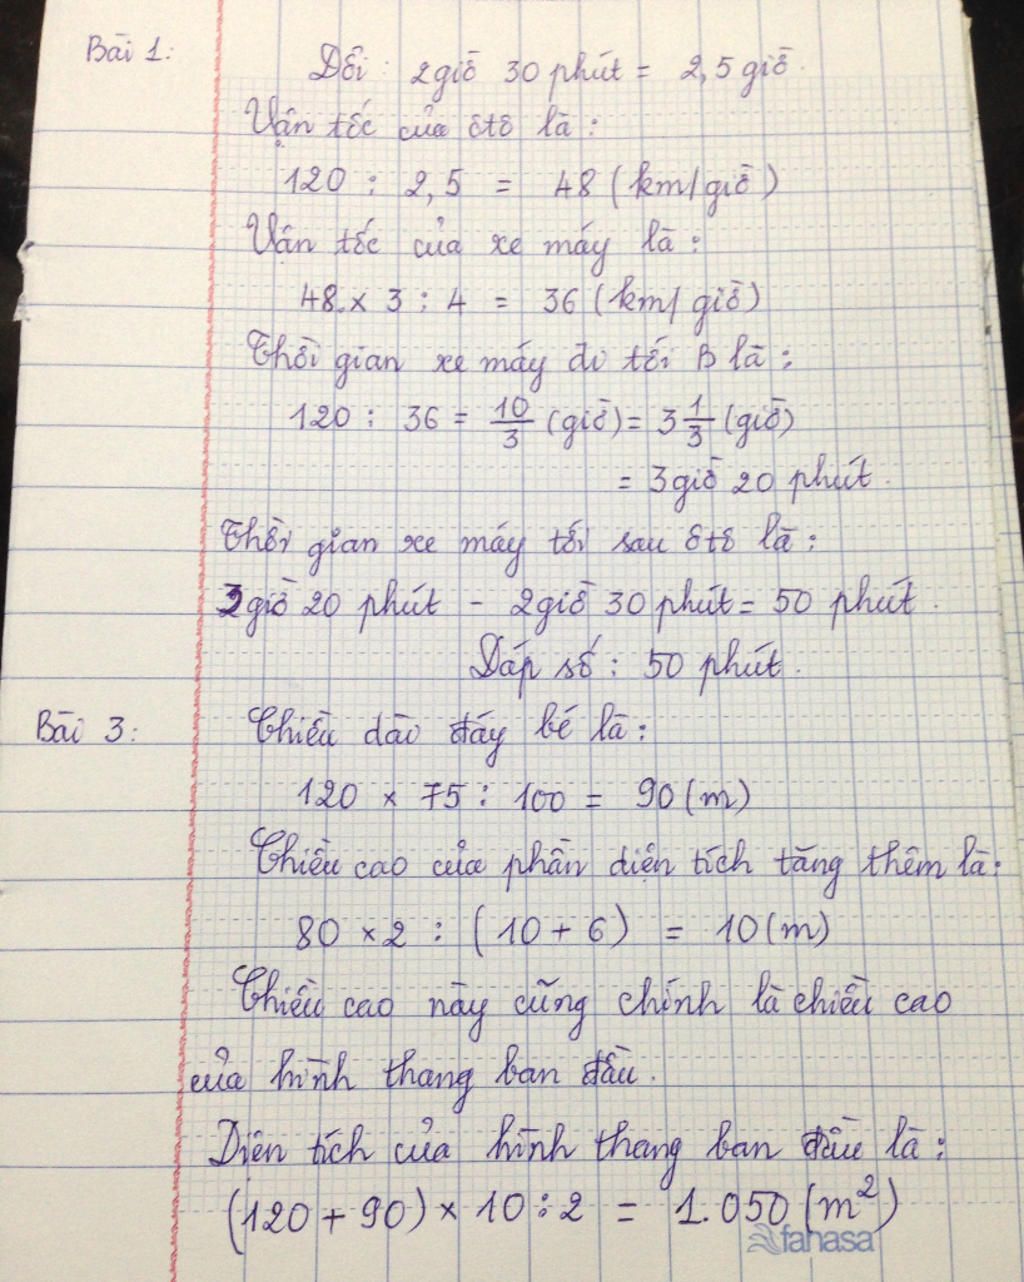 Bài 1:
Đổi: 2giờ 30 phút = 2,5 giờ.
Vận tốc của ôtô là:
120 : 2,5 = 48 (km/giờ)
Vận tốc của xe máy là:
48 x 3 : 4 = 36 (km/giờ)
Thời gian xe máy đi tới B là:
120 : 36 = 10/3 (giờ) = 3 1/3 (giờ)
= 3giờ 20 phút.
Thời gian xe máy tới sau ôtô là:
3giờ 20 phút - 2giờ 30 phút = 50 phút.
Đáp số: 50 phút.
Bài 3:
Chiều dài đáy bé là:
120 x 75 : 100 = 90 (m)
Chiều cao của phần diện tích tăng thêm là:
80 x 2 : (10 + 6) = 10 (m)
Chiều cao này cũng chính là chiều cao
của hình thang ban đầu.
Diện tích của hình thang ban đầu là:
(120 + 90) x 10 : 2 = 1.050 (m²)
fahasa